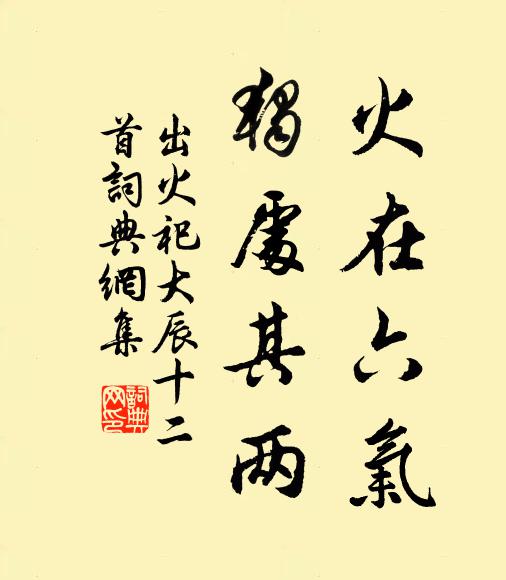 火在六氣
獨處其兩
出火祀大辰十二
首詞典網集
詞典
网印